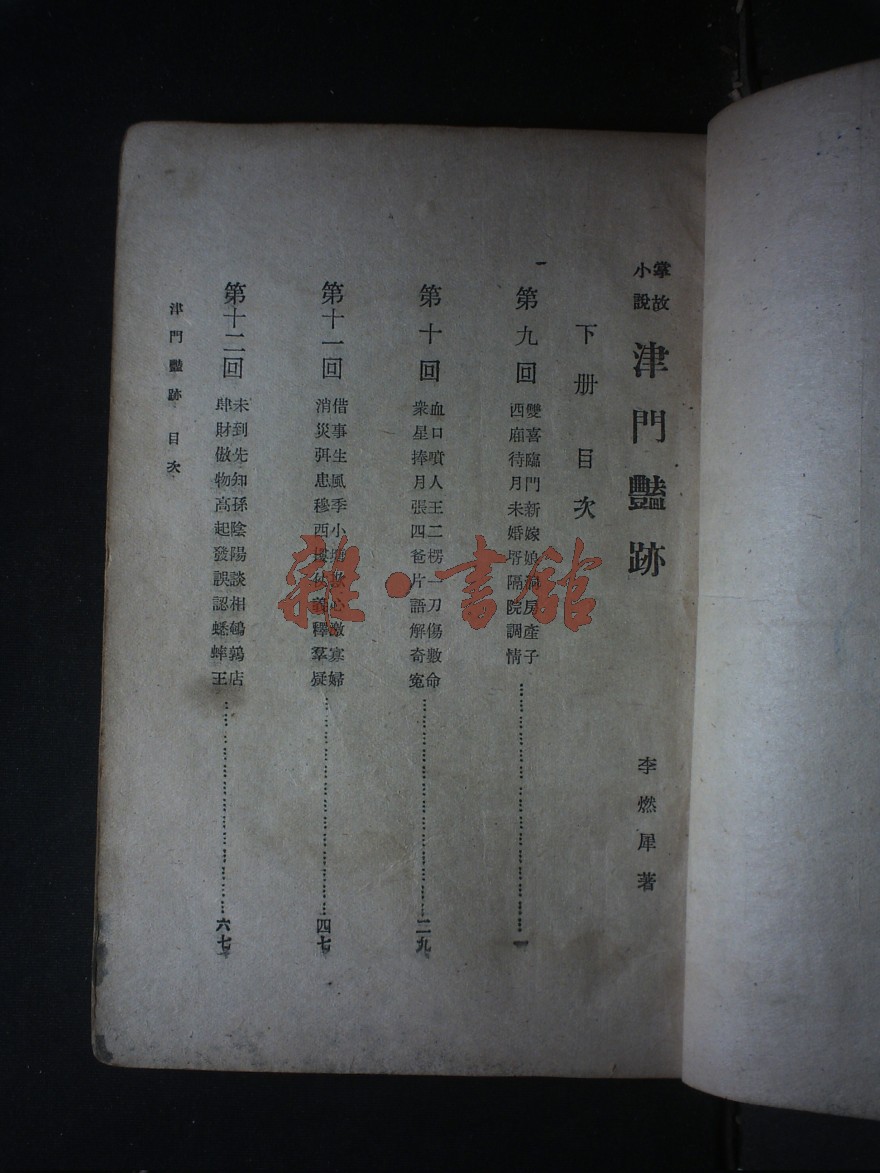 掌故
小說
津門豔跡
李燃犀著
下册 目次
第九回
雙喜臨門新嫁娘洞房產子
西廂待月未婚壻隔院調情
一
第十回
血口噴人王二楞一刀傷數命
衆星捧月張四爸片語解奇寃
二九
第十一回
借事生風季小 寡婦
消災弭患穆西 釋羣疑
四七
第十二回
未到先知孫陰陽談相鵪鶉店
肆財傲物高起發誤認蟋蟀王
六七
津門豔跡 目次
雜·書館